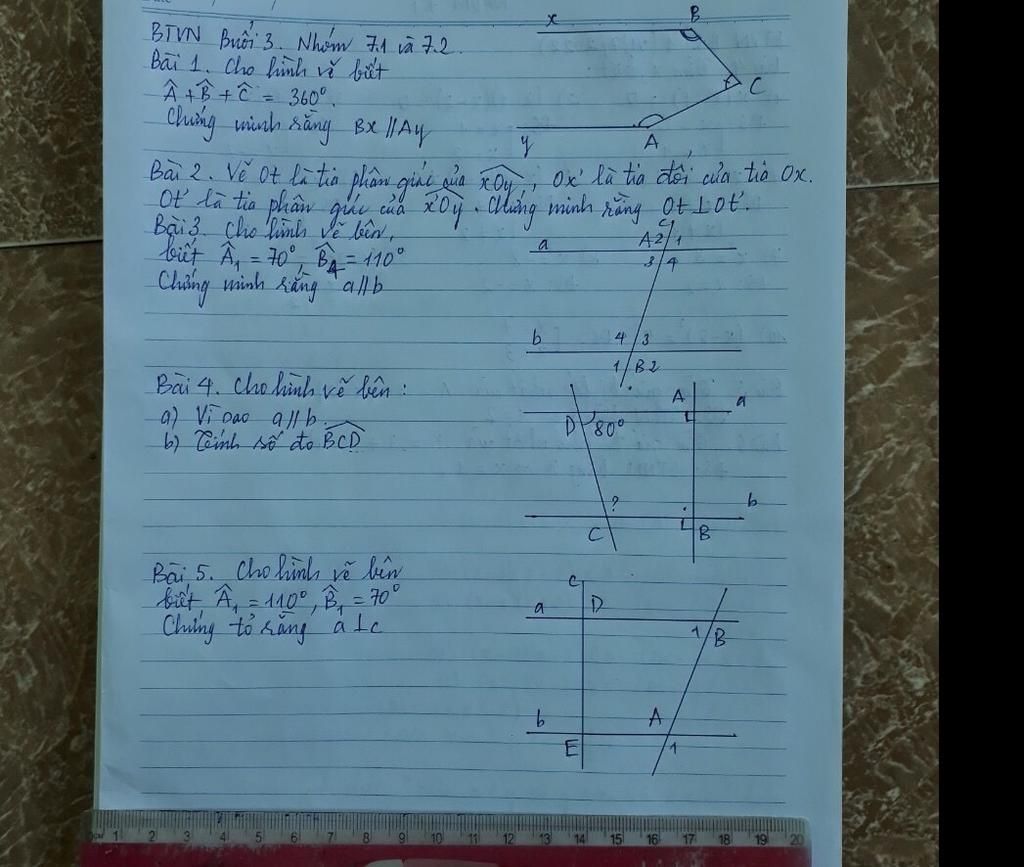 BTVN Buổi 3. Nhóm 7.1 và 7.2.
Bài 1. Cho hình vẽ biết
Â + B̂ + Ĉ = 360°.
Chứng minh rằng Bx // Ay
x B
C
y A
Bài 2. Vẽ Ot là tia phân giác của xOy, Ox' là tia đối của tia Ox.
Ot' là tia phân giác của x'Oy. Chứng minh rằng Ot ⊥ Ot'.
Bài 3. Cho hình vẽ bên,
biết Â₁ = 70°, B̂₄ = 110°
Chứng minh rằng a // b
c
a A 2 1
3 4
b 4 3
1 B 2
Bài 4. Cho hình vẽ bên :
a) Vì sao a // b.
b) Tính số đo BCD
A a
D 80°
? b
C B
Bài 5. Cho hình vẽ bên
biết Â₁ = 110°, B̂₁ = 70°
Chứng tỏ rằng a ⊥ c
c
a D
1 B
b A
E 1
1 2 3 4 5 6 7 8 9 10 11 12 13 14 15 16 17 18 19 20